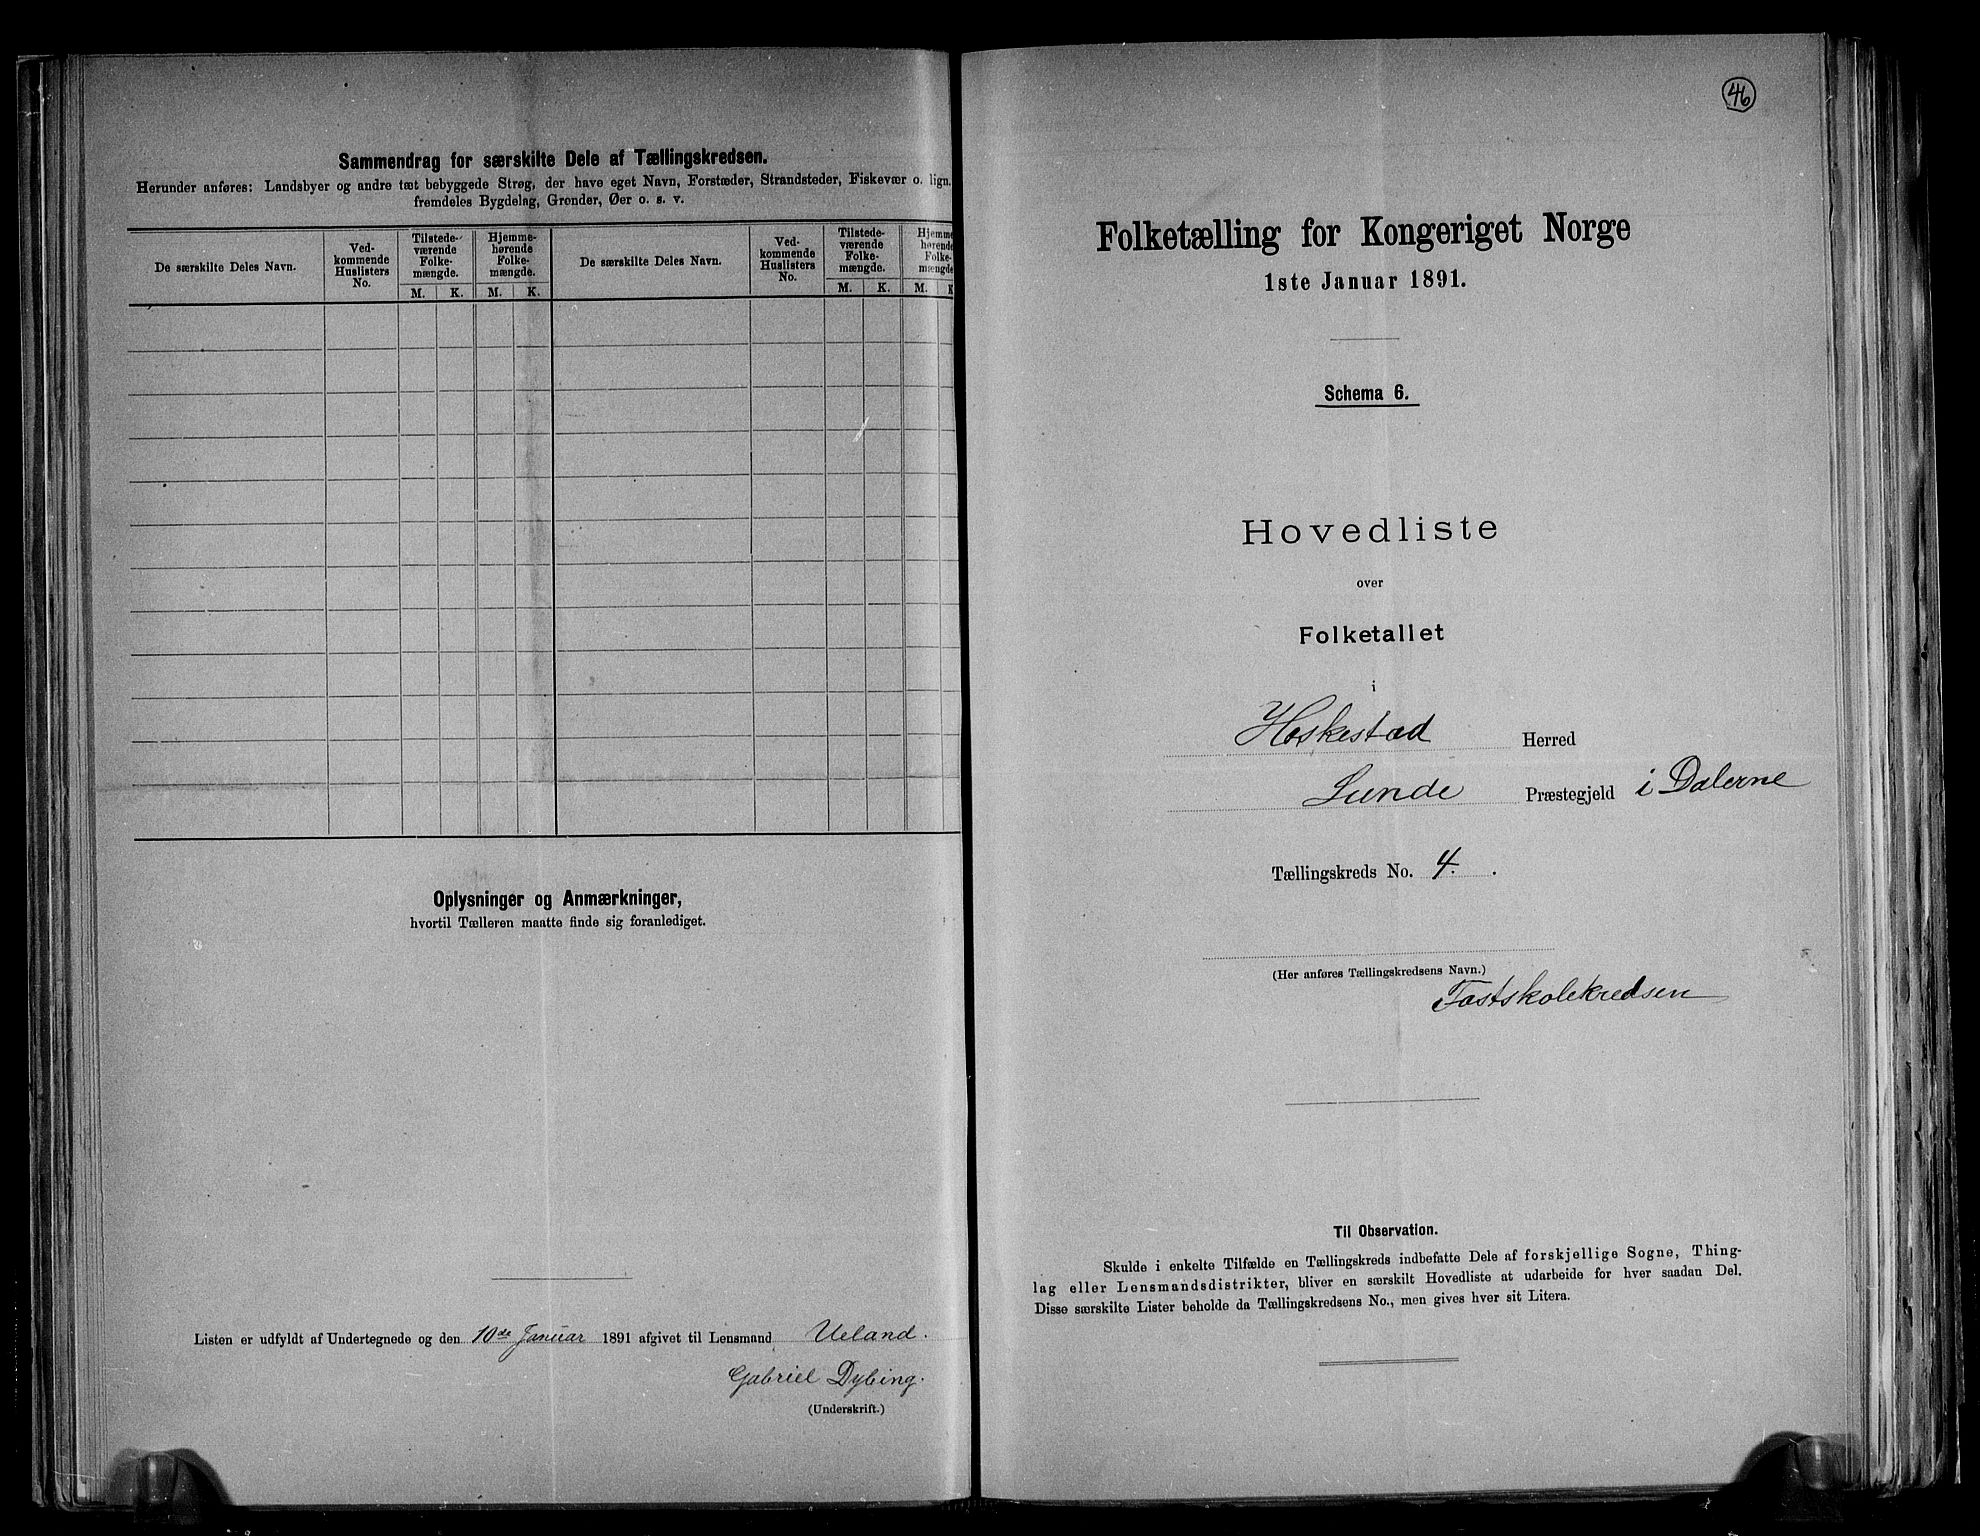 Sammendrag for særskilte Dele af Tællingskredsen.
Herunder anføres: Landsbyer og andre tæt bebyggede Strøg, der have eget Navn, Forstæder, Strandsteder, Fiskevær o. lign.
fremdeles Bygdelag, Grender, Øer o. s. v.
De særskilte Deles Navn.
Ved-
kommende
Huslisters
No.
Tilstede-
værende
Folke-
mængde.
Hjemme-
hørende
Folke-
mængde.
M. K. M. K.
De særskilte Deles Navn.
Ved-
kommende
Huslisters
No.
Tilstede-
værende
Folke-
mængde.
Hjemme
hørende
Folke-
mængde
M. K. M. K
Oplysninger og Anmærkninger,
hvortil Tælleren maatte finde sig foranlediget.
Listen er udfyldt af Undertegnede og den 10de Januar 1891 afgivet til Lensmand Ueland.
Gabriel Dybing.
(Underskrift.)
46
Folketælling for Kongeriget Norge
1ste Januar 1891.
Schema 6.
Hovedliste
over
Folketallet
i
Heskestad Herred
Lunde Præstegjeld i Dalerne
Tællingskreds No. 4.
(Her anføres Tællingskredsens Navn.)
Fastskolekredsen
Til Observation.
Skulde i enkelte Tilfælde en Tællingskreds indbefatte Dele af forskjellige Sogne, Thing-
lag eller Lensmandsdistrikter, bliver en særskilt Hovedliste at udarbeide for hver saadan Del.
Disse særskilte Lister beholde da Tællingskredsens No., men gives hver sit Litera.